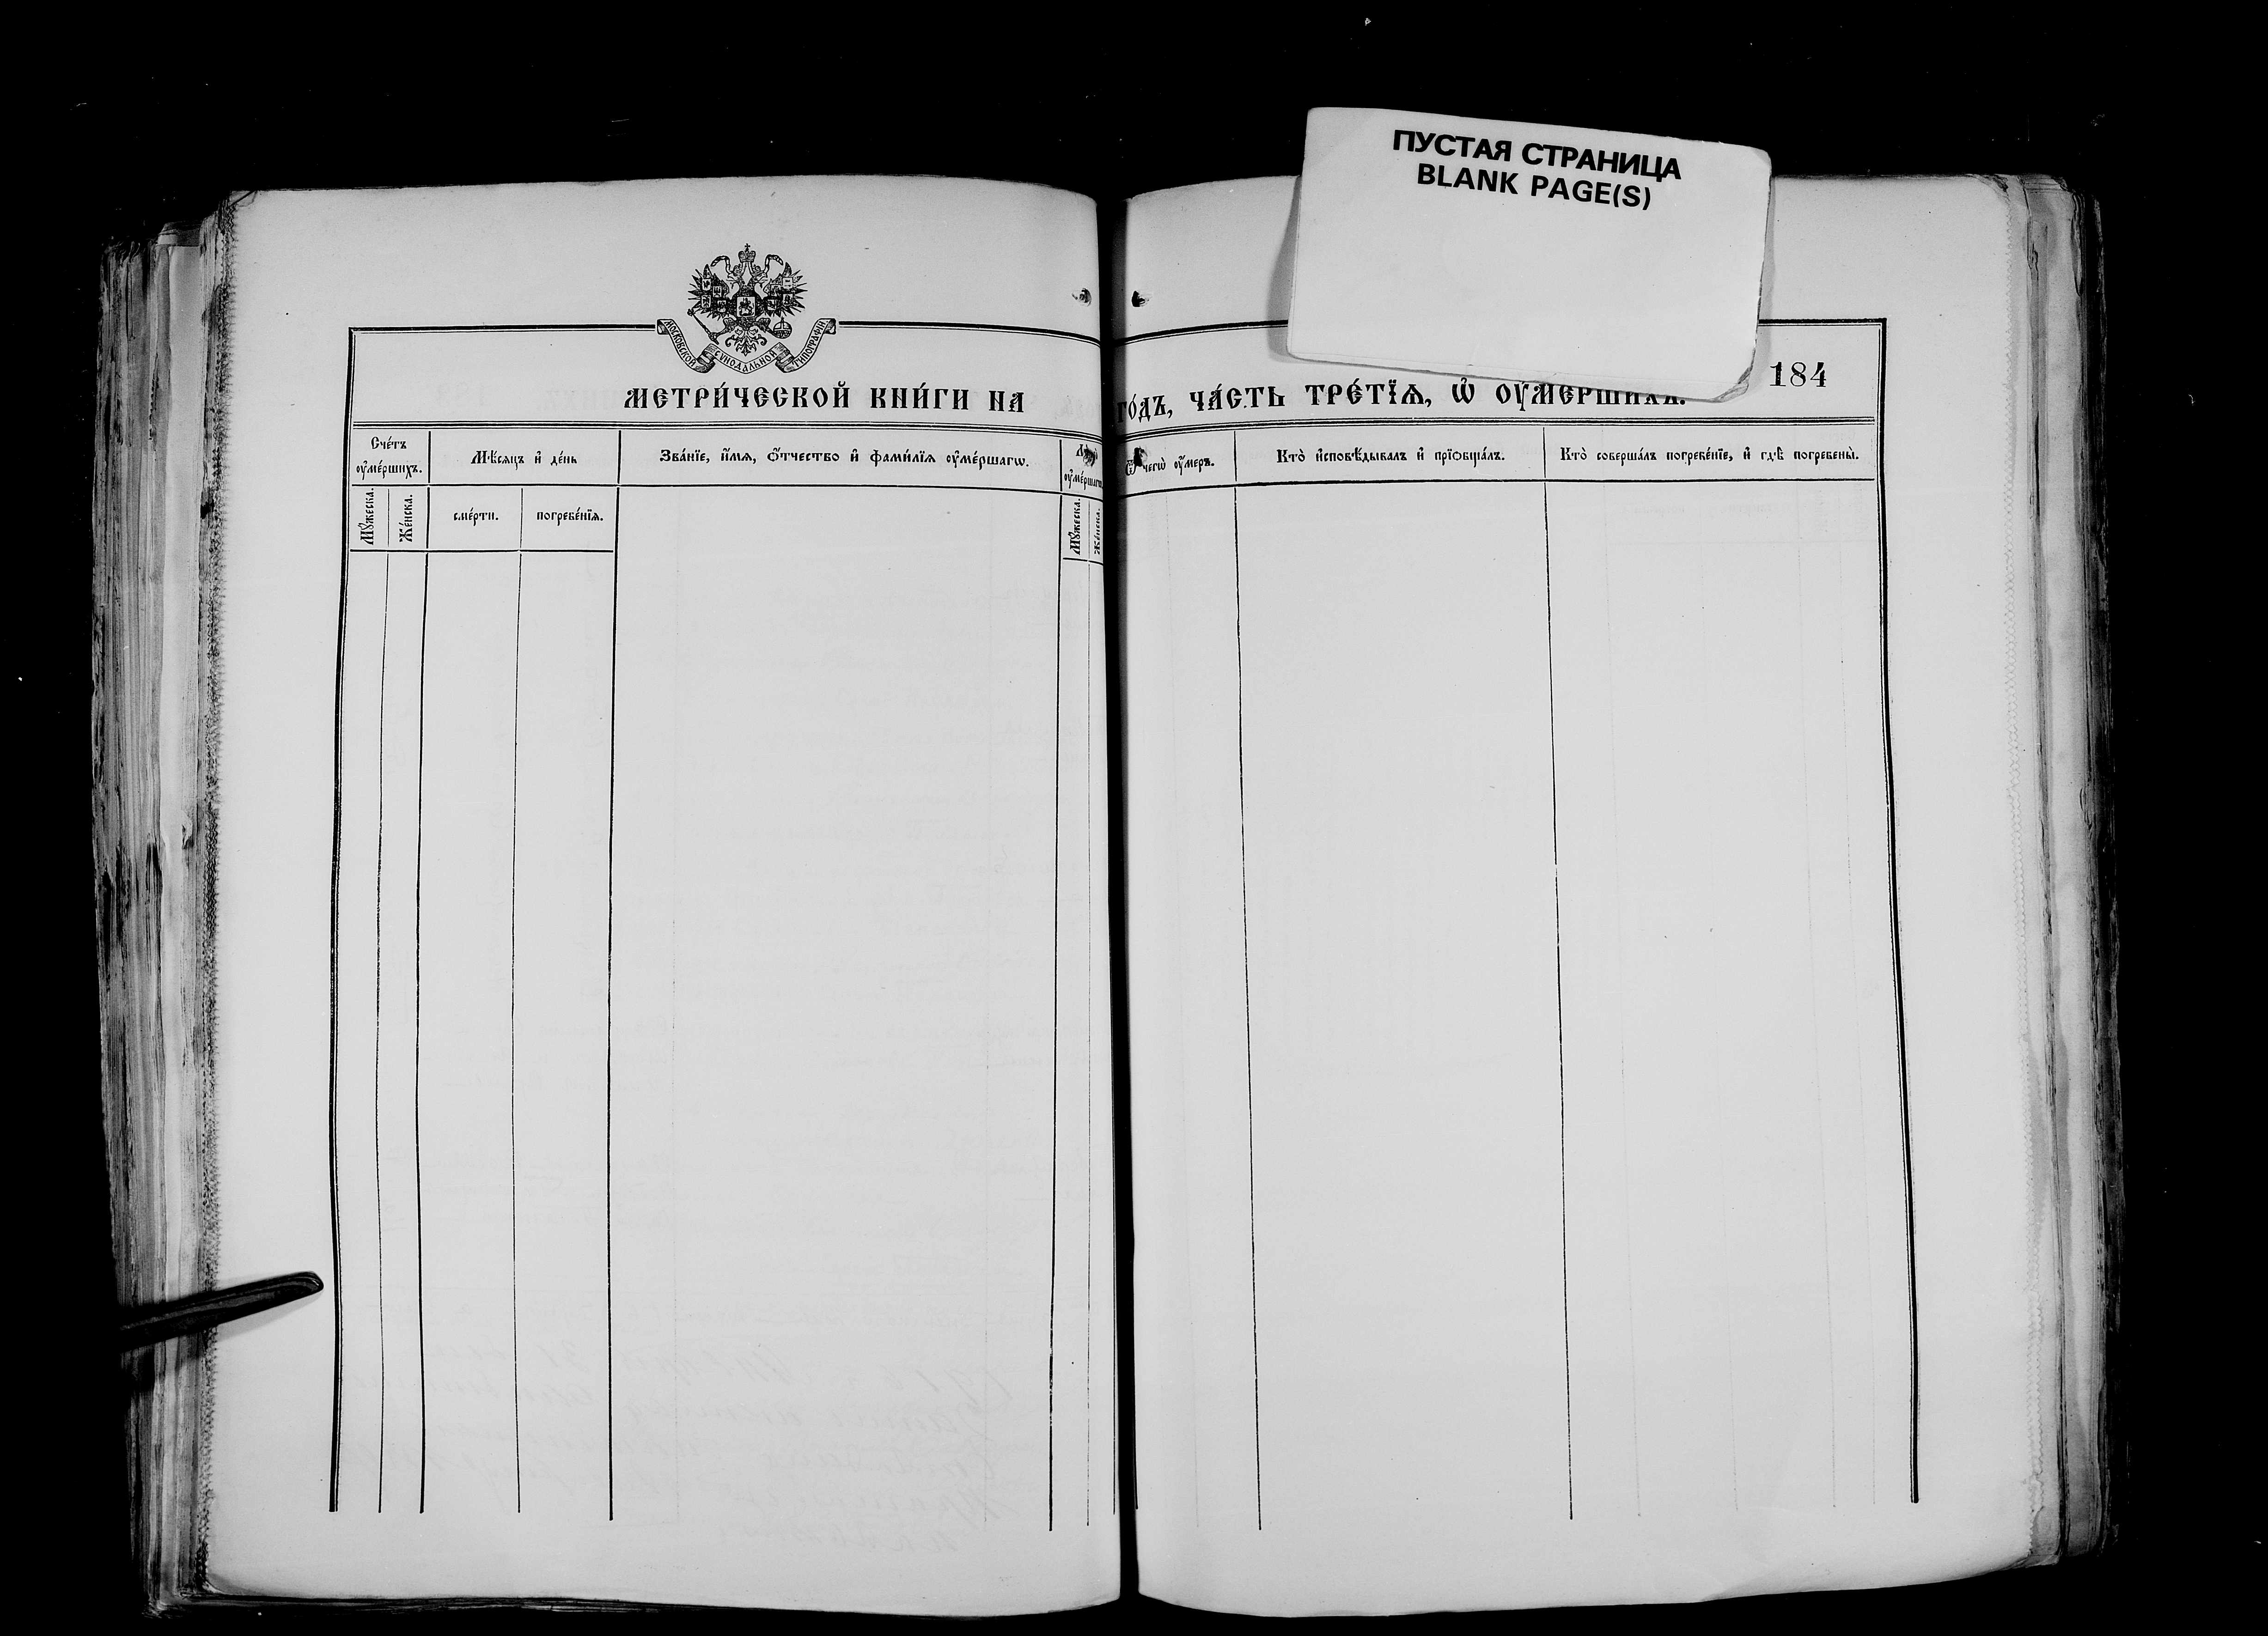 ПУСТАЯ СТРАНИЦА
BLANK PAGE(S)
МОСКОВСКОЙ СѴНОДАЛЬНОЙ ТИПОГРАФІИ
184
МЕТРИ́ЧЕСКОЙ КНИ́ГИ НА ГО́ДЪ, ЧА́СТЬ ТРЕ́ТЇѦ, Ѽ ОУ҆МЕ́РШИХЪ.
Сче́тъ оу҆ме́ршихъ.
Мѣ́сяцъ и҆ де́нь
Зва́нїе, и҆́мѧ, ѻ҆́тчество и҆ фами́лїѧ оу҆ме́ршагѡ.
оу҆ме́ршагѡ
Ѿ чегѡ̀ оу҆́меръ.
Кто̀ и҆сповѣ́дывалъ и҆ прїѻбща́лъ.
Кто̀ соверша́лъ погребе́нїе, и҆ гдѣ̀ погребены̀.
Мꙋ́жеска.
Же́нска.
сме́рти.
погребе́нїѧ.
Мꙋ́жеска.
Же́нска.